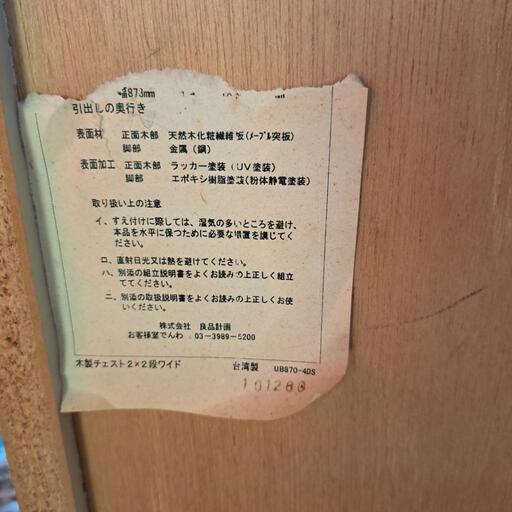 幅870mm
引出しの奥行き
表面材 正面木部 天然木化粧繊維板(メープル突板)
脚部 金属(鋼)
表面加工 正面木部 ラッカー塗装(UV塗装)
脚部 エポキシ樹脂塗装(粉体静電塗装)
取り扱い上の注意
イ、すえ付けに際しては、湿気の多いところを避け、
本品を水平に保つために必要な措置を講じてく
ださい。
ロ、直射日光又は熱を避けてください。
ハ、別添の組立説明書をよくお読みの上正しく組立
ててください。
ニ、別添の取扱説明書をよくお読みの上正しくお使
いください。
株式会社 良品計画
お客様室でんわ 03-3989-5200
木製チェスト2×2段ワイド 台湾製 UB870-4DS